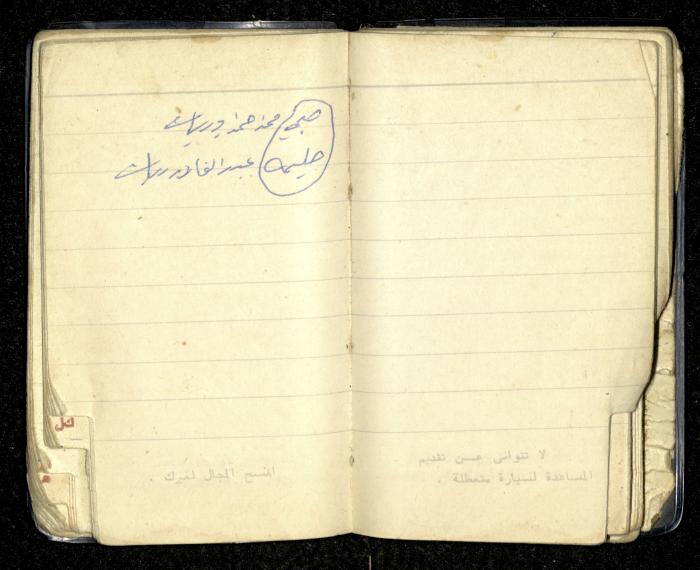 صبحي محمد حمد دريات
حليمه عبد القادر دريات
افسح المجال لغيرك .
لا تتوانى عن تقديم
المساعدة لسيارة متعطلة .
كل